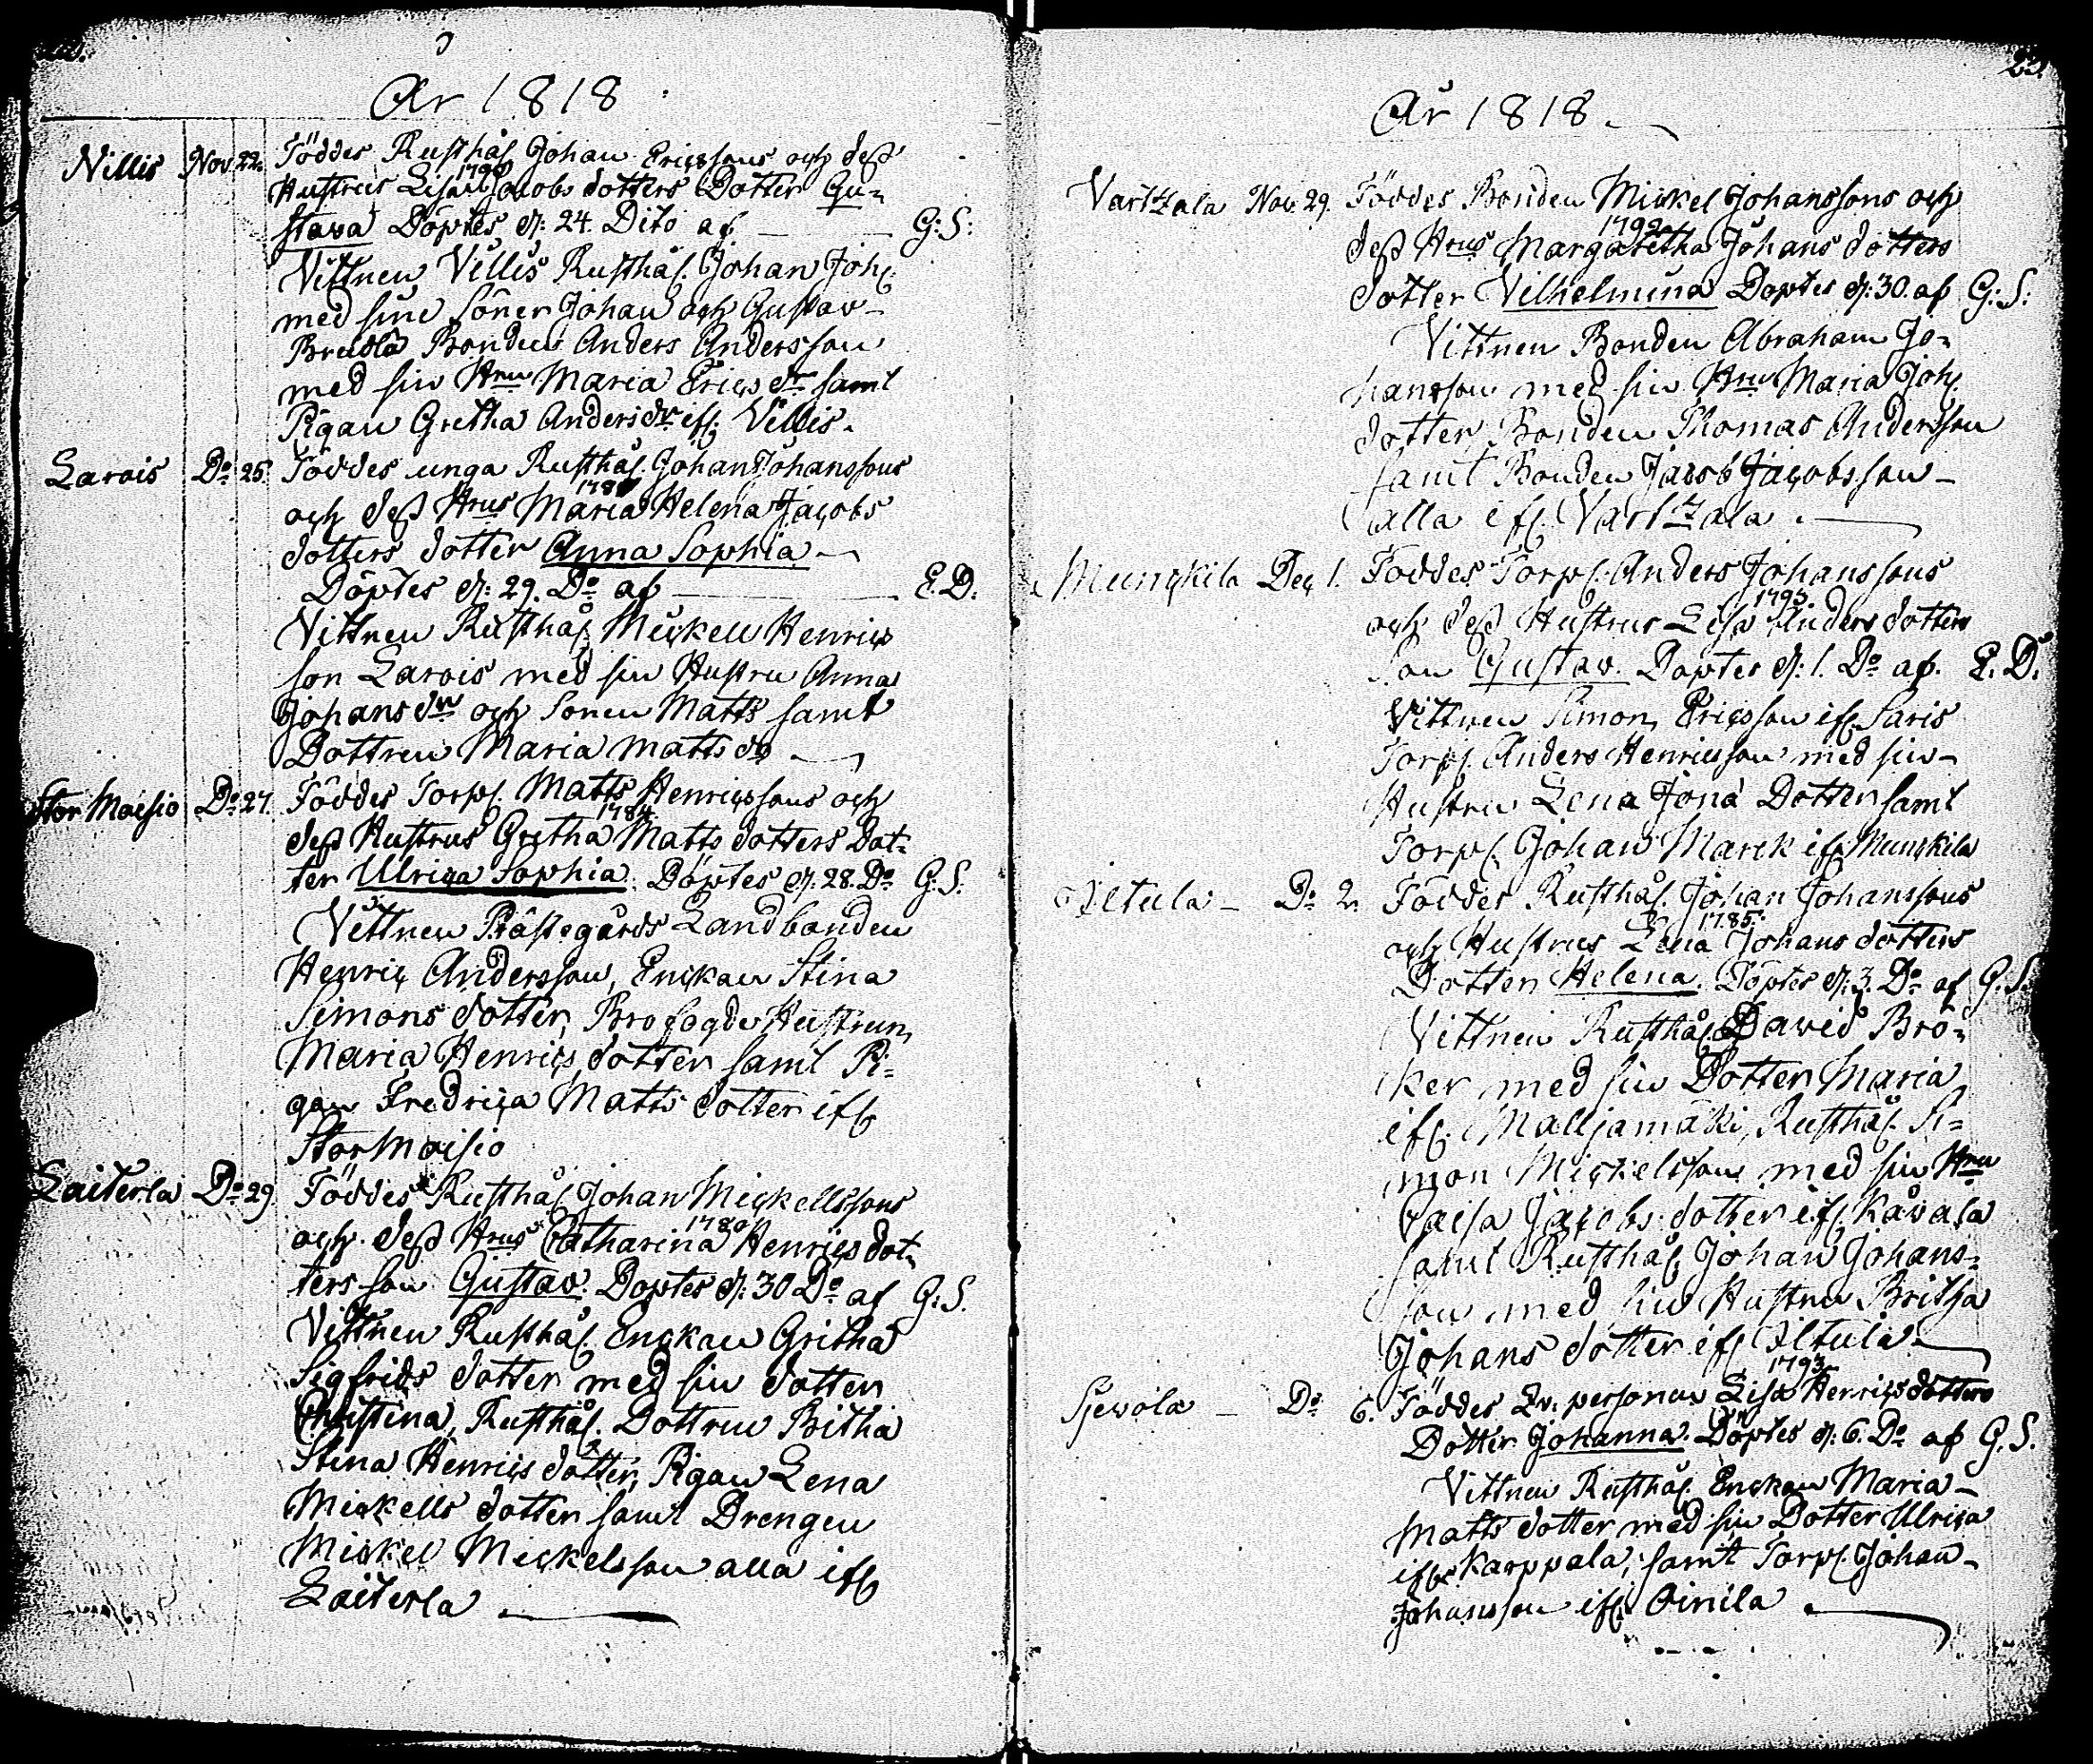 År 1818
Nillis Nov. 22. Föddes Rusthål Johan Ericssons och dess
1790
Hustrus Lisa Jacobs dotters Dotter Gu=
stava Döptes d: 24. Dito af G: S:
Vittnen Villis Rusthål. Johan Joh.
med sine Söner Johan och Gustav
Bonden Anders Andersson
med sin Hru Maria Erics dr samt
Pigan Gretha Anders dr ifr. Villis.
Larois Do 25. Föddes unga Rusthål. Johan Johanssons
och dess Hrus Maria Helena Jacobs
dotters dotter Anna Sophia
Döptes d: 29. Do af E. D.
Vittnen Rusthål. Mickell Henrics
son Larois med sin Hustru Anna
Johans dr och Sonen Matts samt
Dottren Maria Matts dr
Stor Moisio Do 27. Föddes Torp. Matts Henricssons och
1784
dess Hustrus Gretha Matts dotters Dot=
ter Ulrica Sophia. Döptes d: 28. Do G: S.
Vittnen Prästegårds Landbonden
Henric Andersson, Enckan Stina
Simons dotter, Brofogde Hustrun
Maria Henrics dotter samt Pi=
gan Fredrica Matts dotter ifr
Stor Moisio
Laiterla Do 29. Föddes Rusthål. Johan Mickellssons
1780
och dess Hrus Catharina Henrics dot=
ters son Gustav. Döptes d: 30 Do af G: S.
Vittnen Rusthål. Enckan Gritha
Sigfrids dotter med sin dotter
Christina, Rusthål. Dottren Britha
Stina Henrics dotter, Pigan Lena
Mickells dotter samt Drengen
Mickel Mickelsson alla ifr
Laiterla
År 1818
Vartzala Nov. 29. Föddes Bonden Mickel Johanssons och
1792
dess Hrus Margaretha Johans dotters
dotter Vilhelmina Döptes d: 30. af G: S:
Vittnen Bonden Abraham Jo=
hansson med sin Hru Maria Joh.
dotter Bonden Thomas Andersson
samt Bonden Jacob Jacobsson
alla ifr. Vartzala.
Munckila Dec 1. Föddes Torp. Anders Johanssons
1793
och dess Hustrus Lisa Anders dotters
Son Gustav. Döptes d: 1. Do af. E. D.
Vittnen Simon Ericsson ifr Saris
Torp. Anders Henricsson med sin
Hustru Lena Jona Dotter samt
Torp. Johan Marck ifr Munckila
Iltula Do 2. Föddes Rusthål. Johan Johanssons
1785
och Hustrus Lena Johans dotters
Dotter Helena. Döptes d: 3. Do af G. S.
Vittnen Rusthål. David Brö=
ker med sin Dotter Maria
ifr. Malljamäki, Rusthål. Si=
mon Mickelsson med sin Hru
Caisa Jacobs dotter ifr Kåvala
samt Rusthål. Johan Johans=
son med sin Hustru Britha
Johans dotter ifr Iltula
1793
Sjevola Do 6. Föddes Qv. personen Lisa Henrics dotters
Dotter Johanna. Döptes d: 6. Do af G. S.
Vittnen Rusthål. Enckan Maria
Matts dotter med sin Dotter Ulrica
ifr Karppala, samt Torp. Johan
Johansson ifr Oinila